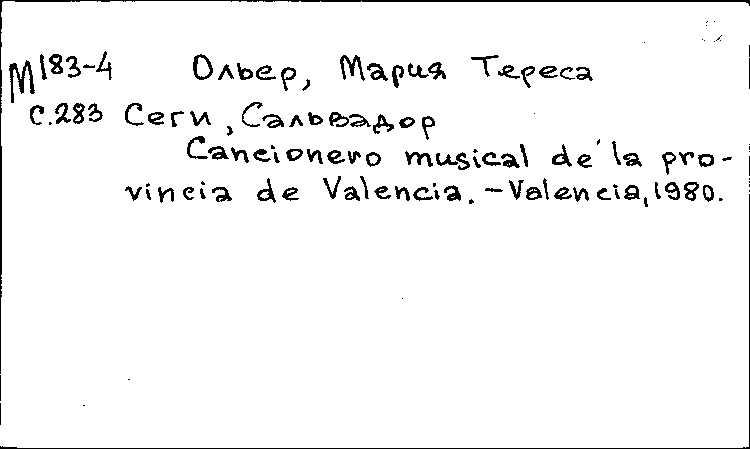 М183-4 Ольер, Мария Тереса
с.283 Сеги, Сальвадор
Cancionero musical de la pro-
vincia de Valencia. - Valencia, 1980.